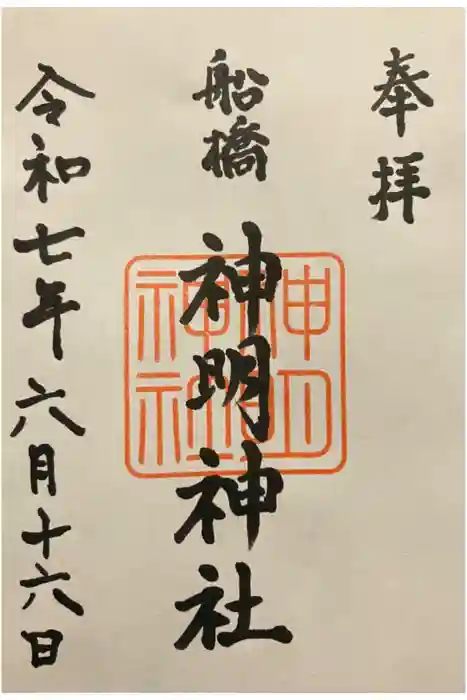 奉拝
船橋
神明神社
神明神社
令和七年六月十六日